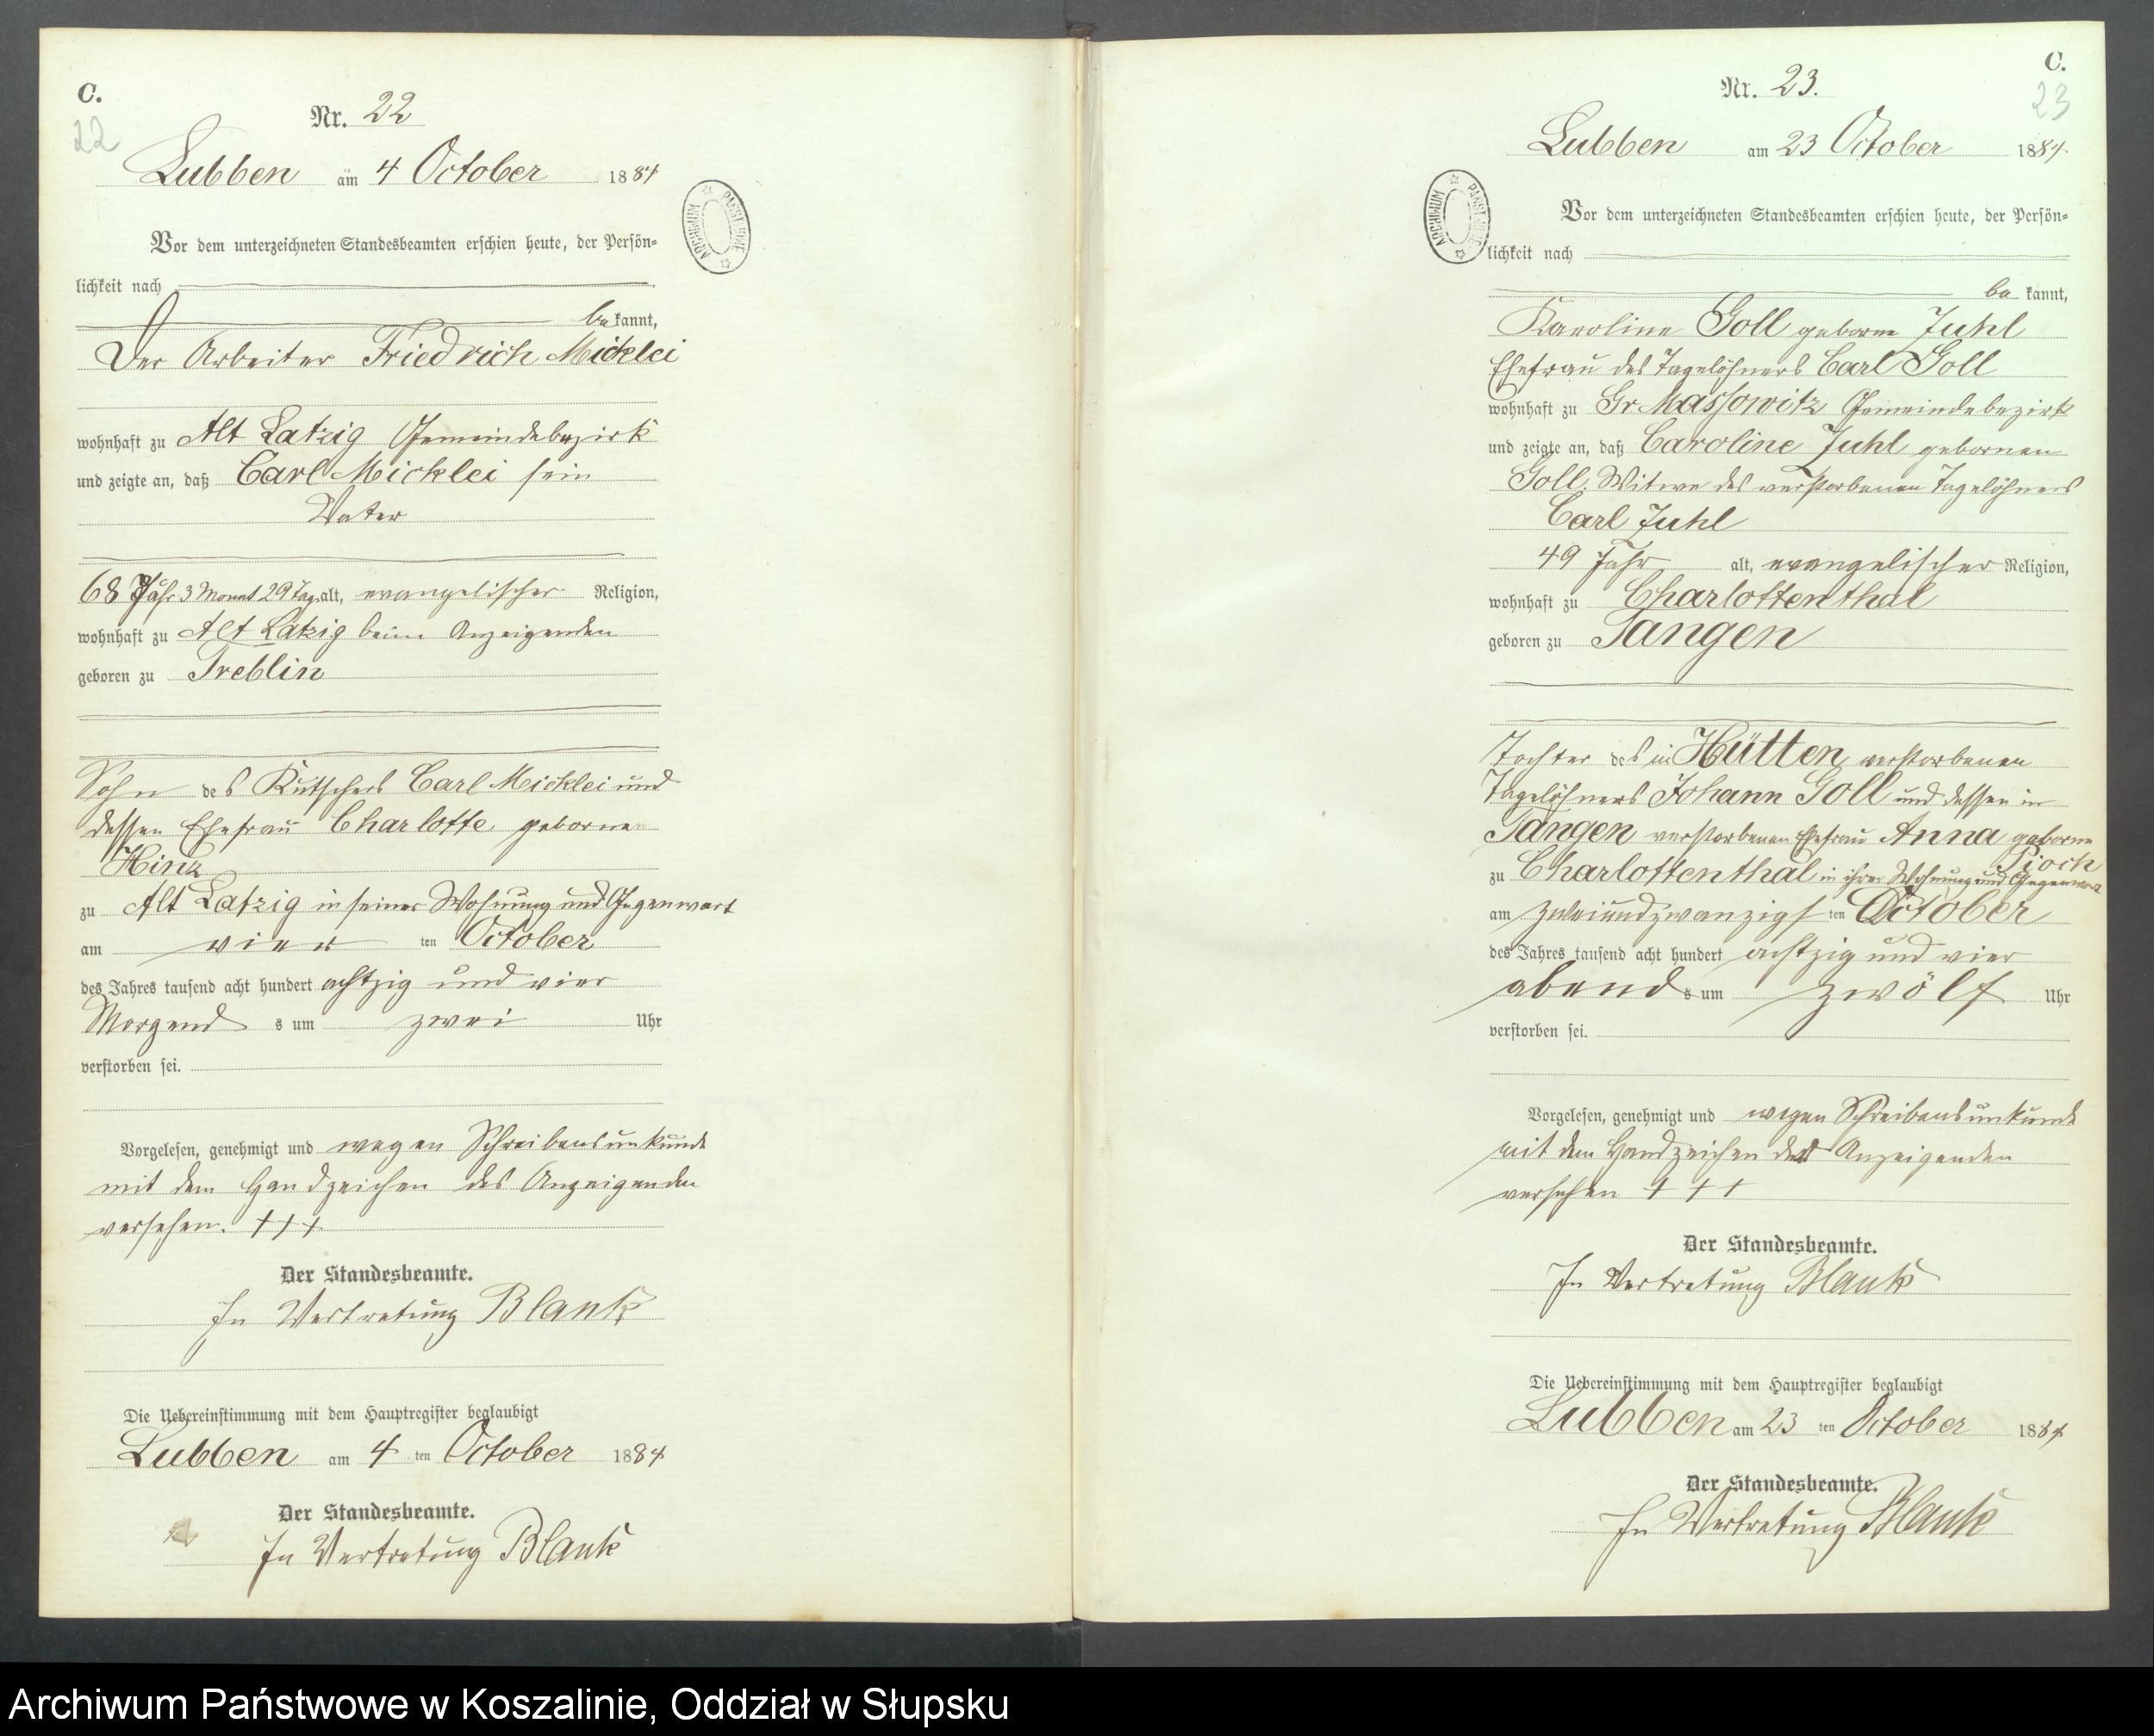 C.
22
Nr. 22
Lubben am 4 October 1884
ARCHIWUM PAŃSTWOWE
Vor dem unterzeichneten Standesbeamten erschien heute, der Persön=
lichkeit nach
be kannt,
Der Arbeiter Friedrich Micklei
wohnhaft zu Alt Latzig Gemeindebezirk
und zeigte an, daß Carl Micklei sein
Vater
68 Jahr 3 Monat 29 Tag alt, evangelischer Religion,
wohnhaft zu Alt Latzig beim Anzeigenden
geboren zu Treblin
Sohn des Kutschers Carl Micklei und
dessen Ehefrau Charlotte gebornen
Hinz
zu Alt Latzig in seiner Wohnung und Gegenwart
am vier ten October
des Jahres tausend acht hundert achtzig und vier
Morgend s um zwei Uhr
verstorben sei.
Vorgelesen, genehmigt und wegen Schreibensunkunde
mit dem Handzeichen des Anzeigenden
versehen. +++
Der Standesbeamte.
In Vertretung Blank
Die Uebereinstimmung mit dem Hauptregister beglaubigt
Lubben am 4 ten October 1884
Der Standesbeamte.
In Vertretung Blank
C.
23
Nr. 23.
Lubben am 23 October 1884.
ARCHIWUM PAŃSTWOWE
Vor dem unterzeichneten Standesbeamten erschien heute, der Persön=
lichkeit nach
be kannt,
Karoline Goll geborne Juhl
Ehefrau des Tagelöhners Carl Goll
wohnhaft zu Gr Massowitz Gemeindebezirk
und zeigte an, daß Caroline Juhl gebornen
Goll. Witwe des verstorbenen Tagelöhners
Carl Juhl
49 Jahr alt, evangelischer Religion,
wohnhaft zu Charlottenthal
geboren zu Tangen
Tochter des in Hütten verstorbenen
Tagelöhners Johann Goll und dessen in
Tangen verstorbenen Ehefrau Anna geborne
Pioch
zu Charlottenthal in ihrer Wohnung und Gegenwart
am zweiundzwanzigs ten October
des Jahres tausend acht hundert achtzig und vier
abend s um zwölf Uhr
verstorben sei.
Vorgelesen, genehmigt und wegen Schreibensunkunde
mit dem Handzeichen der Anzeigenden
versehen + + +
Der Standesbeamte.
In Vertretung Blank
Die Uebereinstimmung mit dem Hauptregister beglaubigt
Lubben am 23 ten October 1884
Der Standesbeamte.
In Vertretung Blank
Archiwum Państwowe w Koszalinie, Oddział w Słupsku